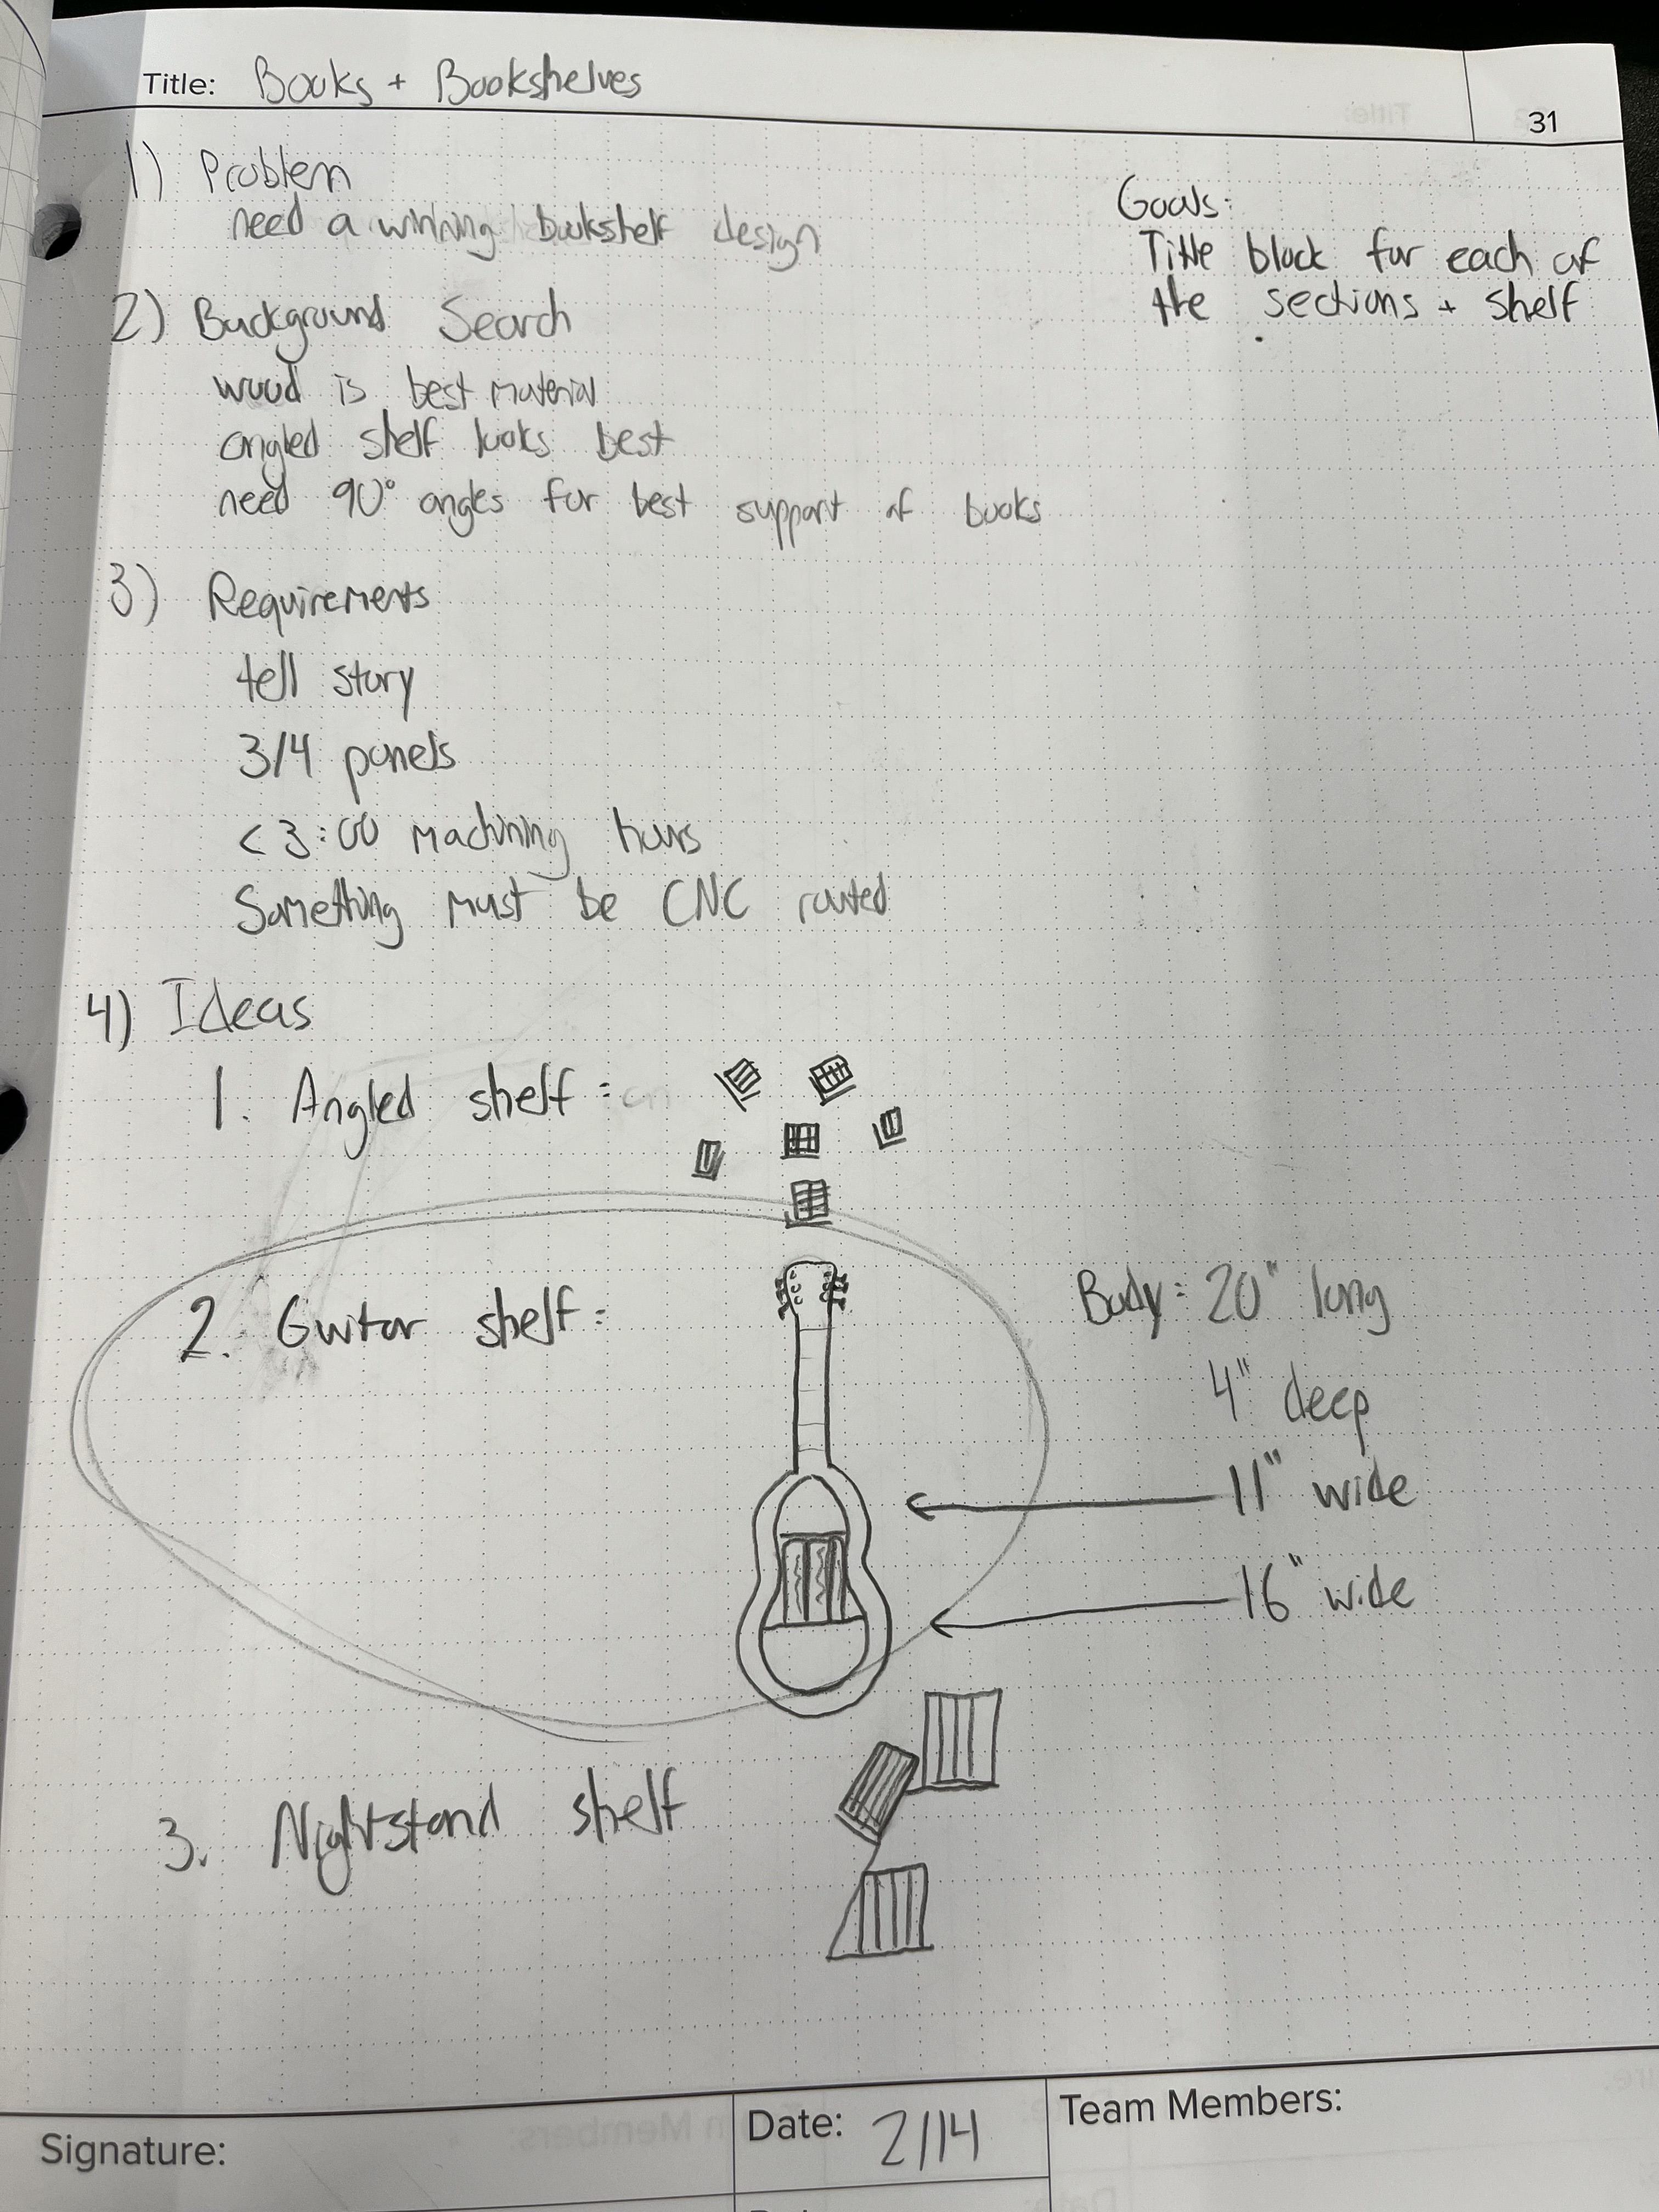 Title: Books + Bookshelves
31
1) Problem
need a winning bookshelf design
Goals:
Title block for each of
the sections + shelf
2) Background Search
wood is best material
angled shelf looks best
need 90° angles for best support of books
3) Requirements
tell story
3/4 panels
<3:00 machining hours
Something must be CNC routed
4) Ideas
1. Angled shelf:
2. Guitar shelf:
Body: 20" long
4" deep
11" wide
16" wide
3. Nightstand shelf
Signature:
Date: 2/14
Team Members: